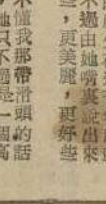 不過由她嘴裏說出來
些，更美麗，更好些
不懂我那帶滑頭的話
她只不過是一個高